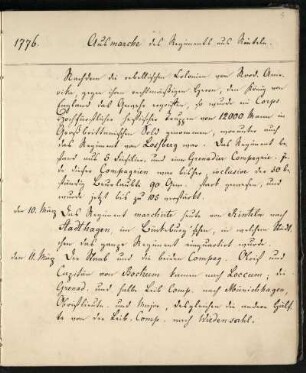 1776. Ausmarsche des Regiments aus Rinteln.
Nachdem die rebellischen Colonien von Nord-Ame-
rika, gegen ihren rechtmäßigen Herrn, den König von
England das Gewehr ergriffen, so wurde ein Corps
Hochfürstlicher hessischer Truppen von 12000 Mann in
Großbrittannischen Sold genommen, worunter auch
das Regiment von Lossberg war. Das Regiment be-
stand aus 5 Füsilier, und eine Grenadier Compagnie. Je-
de dieser Compagnien war bisher inclusive der 30 be-
ständig Beurlaubte 90 Gem. stark gewesen, und
wurde jetzt bis zu 105 verstärkt.
den 10. März Das Regiment marchirte heute von Rinteln nach
Stadthagen, im Bückeburg'schen, in welcher Stadt
den das ganze Regiment einquartirt wurde.
den 11. März Der Staab und die beiden Compag. Obrist und
Capitän von Bochum kamen nach Loccum; die
Grenad. und halbe Leib Comp. nach Münichhagen,
Obristlieut. und Major, desgleichen die andere Hälf-
te von der Leib. Comp. nach Wiedensahl.